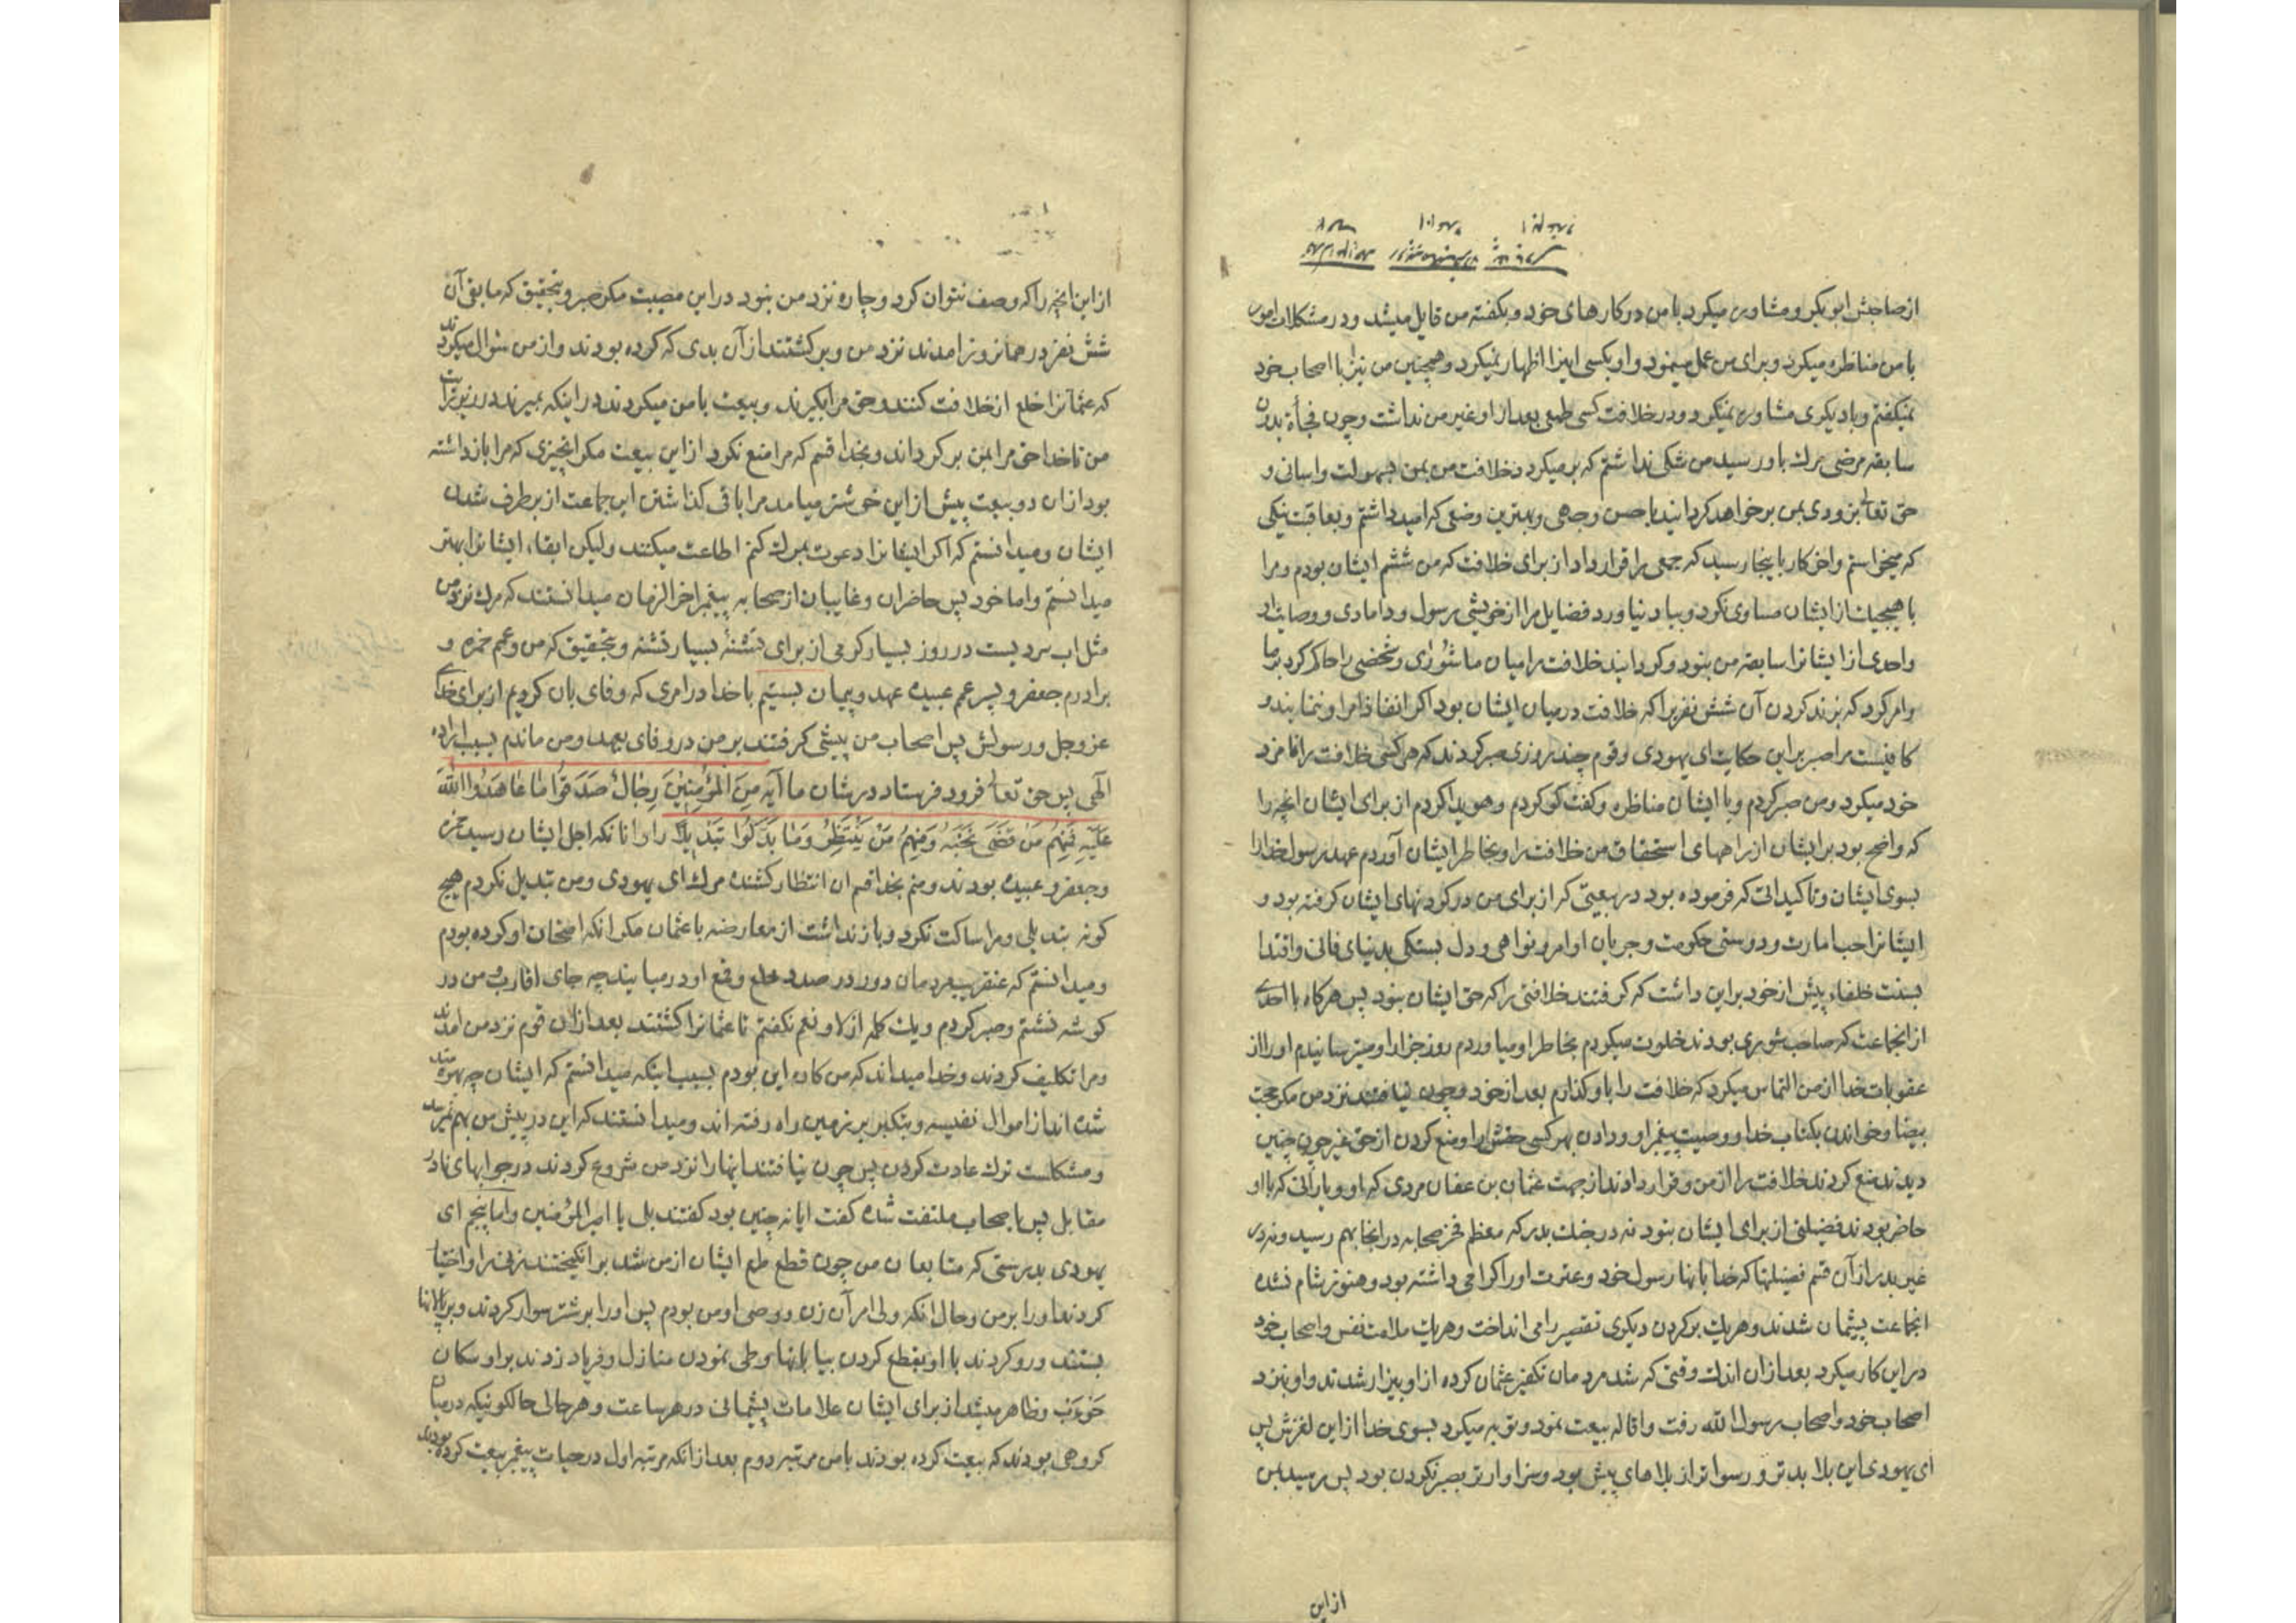 از صاحبش ابوبکر و مشاوره میکرد با من در کارهای خود و بکفته من قایل میشد و در مشکلات امور
با من مناظره میکرد و برای من عمل مینمود و او بکسی اینرا اظهار نمیکرد و همچنین من نیز با اصحاب خود
نمیکفتم و با دیکری مشاوره نمیکرد و در خلافت کسی طمعی بعد از او غیر من نداشت و چون فجأة بدون
سابقه مرضی مرك باو رسید من شکی نداشتم که برمیکردد خلافت من بمن بسهولت و اسانی و
حق تعالی بزودی بمن برخواهد کردانید باحسن وجهی و بهترین وضعی که امید داشتم و بعاقبت نیکی
که میخواستم و اخر کار باینجا رسید که جمعی را قرار داد از برای خلافت که من ششم ایشان بودم و مرا
با هیچیك از ایشان مساوی نکرد و بیاد نیاورد فضایل مرا از خویشی رسول و دامادی و وصایت او
واحدی از ایشانرا سابقه من نبود و کردانید خلافت را میان ما شوری و شخصی را حاکم کرد بر ما
و امر کرد که بزند کردن آن شش نفر را که خلافت در میان ایشان بود اکر انفاذ امر او ننمایند و
کافیست مرا صبر بر این حکایت ای یهودی و قوم چند روزی صبر کردند که هر کس خلافت را نامزد
خود میکرد و من صبر کردم و با ایشان مناظره و کفت کو کردم و هویدا کردم از برای ایشان انچه را
که واضح بود بر ایشان از راههای استحقاق من خلافت را و بخاطر ایشان آوردم عهد رسول خدا را
بسوی ایشان و تاکیداتی که فرموده بود در بیعتی که از برای من در کردنهای ایشان کرفته بود و
ایشانرا حب امارت و دوستی حکومت و جریان اوامر و نواهی و دل بستکی بدنیای فانی و اقتدا
بسنت خلفاء پیش از خود بر این داشت که کرفتند خلافتی را که حق ایشان نبود پس هرکاه با احدی
از انجماعت که صاحب شوری بودند خلوت میکردم بخاطر او میاوردم روز جزا را و میترسانیدم او را از
عقوبات خدا از من التماس میکرد که خلافت را باو کذارم بعد از خود و چون نیافتند نزد من مکر حجت
بیضا و خواندن بکتاب خدا و وصیت پیغمبر او و دادن بهر کسی حقش را و منع کردن از حق غیر چون چنین
دیدند منع کردند خلافت را از من و قرار دادند از جهت عثمان بن عفان مردی که او و یارانی که با او
حاضر بودند فضیلتی از برای ایشان نبود نه در جنك بدر که معظم فخر صحابه در انجا بهم رسید و نه در
غیر بدر از آن قسم فضیلتها که خدا بانها رسول خود و عترت او را کرامی داشته بود و هنوز شام نشده
انجماعت پشیمان شدند و هریك بر کردن دیکری تقصیر را می انداخت و هریك ملامت نفس و اصحاب خود
در این کار میکرد بعد از آن اندك وقتی که شد مردمان تکفیر عثمان کرده از او بیزار شدند و او نزد
اصحاب خود و اصحاب رسول الله رفت و اقاله بیعت نمود و توبه میکرد بسوی خدا از این لغزش پس
ای یهودی این بلا بدتر و رسواتر از بلاهای پیش بود و سزاوارتر بصبر نکردن بود پس رسید بمن
از این
از این انچه را که وصف نتوان کرد و چاره نزد من نبود در این مصیبت مکر صبر و بتحقیق که ما بقی آن
شش نفر در همانروز امدند نزد من و برکشتند از آن بدی که کرده بودند و از من سؤال میکردند
که عثمانرا خلع از خلافت کنند و حق مرا بکیرند و بیعت با من میکردند در اینکه بمیرند در زیر رایت
من تا خدا حق مرا بمن برکرداند و بخدا قسم که مرا منع نکرد از این بیعت مکر انچیزی که مرا بازداشته
بود از ان دو بیعت پیش از این خوشتر میامد مرا باقی کذاشتن این جماعت از برطرف شدن
ایشان و میدانستم که اکر ایشانرا دعوت بمرك کنم اطاعت میکنند ولیکن ابقاء ایشانرا بهتر
میدانستم و اما خود پس حاضران و غایبان از صحابه پیغمبر اخر الزمان میدانستند که مرك نزد من
مثل اب سردیست در روز بسیار کرمی از برای تشنهٔ بسیار تشنه و بتحقیق که من و عمم حمزه و
برادرم جعفر و پسر عمم عبیده عهد و پیمان بستیم با خدا در امری که وفای بان کردیم از برای خدای
عز و جل و رسولش پس اصحاب من پیشی کرفتند بر من در وفای بعهد و من ماندم بسبب اراده
آلهی پس حق تعالی فرود فرستاد در شان ما آیه مِنَ الْمُؤْمِنِینَ رِجَالٌ صَدَقُوا مَا عَاهَدُوا اللهَ
عَلَیْهِ فَمِنْهُمْ مَنْ قَضَی نَحْبَهُ وَمِنْهُمْ مَنْ یَنْتَظِرُ وَمَا بَدَّلُوا تَبْدِیلًا را و انانکه اجل ایشان رسید حمزه
و جعفر و عبیده بودند و منم بخدا قسم ان انتظار کشنده مرك ای یهودی و من تبدیل نکردم هیچ
کونه تبدیلی و مرا ساکت نکرد و باز نداشت از معارضه با عثمان مکر انکه امتحان او کرده بودم
و میدانستم که عنقریب مردمان دور در صدد خلع و قمع او درمیایند چه جای اقارب و من در
کوشه نشستم و صبر کردم و یك کلمه از لا و نعم نکفتم تا عثمانرا کشتند بعد از ان قوم نزد من امدند
و مرا تکلیف کردند و خدا میداند که من کاره این بودم بسبب اینکه میدانستم که ایشان چه بهره‌مند
شده اند از اموال نفیسه و بتکبر بر زمین راه رفته اند و میدانستند که این در پیش من بهم نمیرسد
و مشکلست ترك عادت کردن پس چون نیافتند اینها را نزد من شروع کردند در جوابهای نادر
مقابل پس باصحاب ملتفت شده کفت ایا نه چنین بود کفتند بلی یا امیر المؤمنین و اما پنجم ای
یهودی بدرستی که متابعان من چون قطع طمع ایشان از من شد برانکیختند زنی را و اختیار
کردند او را بر من و حال انکه ولی امر آن زن و وصی او من بودم پس او را بر شتر سوار کردند و بر بالانها
بستند و رو کردند با او بقطع کردن بیابانها و طی نمودن منازل و فریاد زدند بر او سکان
حَوْءَب و ظاهر میشد از برای ایشان علامات پشیمانی در هر ساعت و هر حالی حالکونیکه در میان
کروهی بودند که بیعت کرده بودند با من مرتبه دوم بعد از انکه مرتبه اول در حیات پیغمبر بیعت کرده بودند